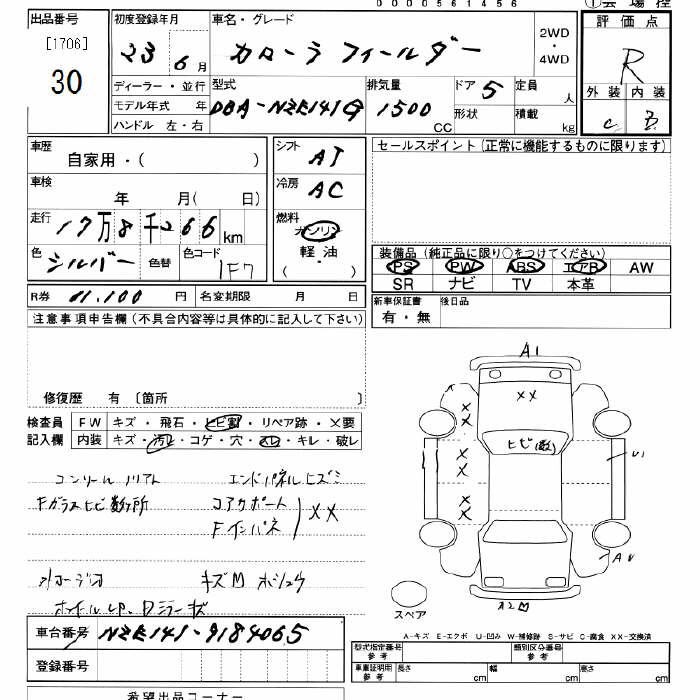 0000561456
出品番号 初度登録年月 車名・グレード ①会場控
[1706] 23 6月 カローラ フィールダー 2WD・4WD 評価点
30 R
ディーラー・並行 型式 排気量 ドア 5 定員 人 外装 内装
モデル年式 年 DBA-NZE141G 1500 形状 積載 C B
ハンドル 左・右 CC kg
車歴 シフト AT セールスポイント(正常に機能するものに限ります)
自家用・( )
車検 冷房 AC
年 月( 日)
走行 17万8千266km 燃料 ガソリン
色 シルバー 色替 色コード 1F7 軽・油 装備品(純正品に限り○をつけてください)
( ・ ) PS PW ABS エアB AW
SR ナビ TV 本革
R券 11,100 円 名変期限 月 日 新車保証書 後日品
注意事項申告欄(不具合内容等は具体的に記入して下さい) 有・無
A1
修復歴 有〔箇所 〕 XX
検査員 FW キズ・飛石・ヒビ割・リペア跡・X要
記入欄 内装 キズ・汚れ・コゲ・穴・スレ・キレ・破レ ヒビ(数)
エンドパネルヒズミ U1
Fガラスヒビ数ヶ所 コアサポート
Fインパネ XX
キズM
スペア A2
車台番号 NZE141-9184065 A-キズ E-エクボ U-凹み W-補修跡 S-サビ C-腐食 XX-交換済
型式指定番号 参考 類別区分番号 参考
登録番号 車庫証明用 参考 長さ cm 幅 cm 高さ cm
希望出品コーナー